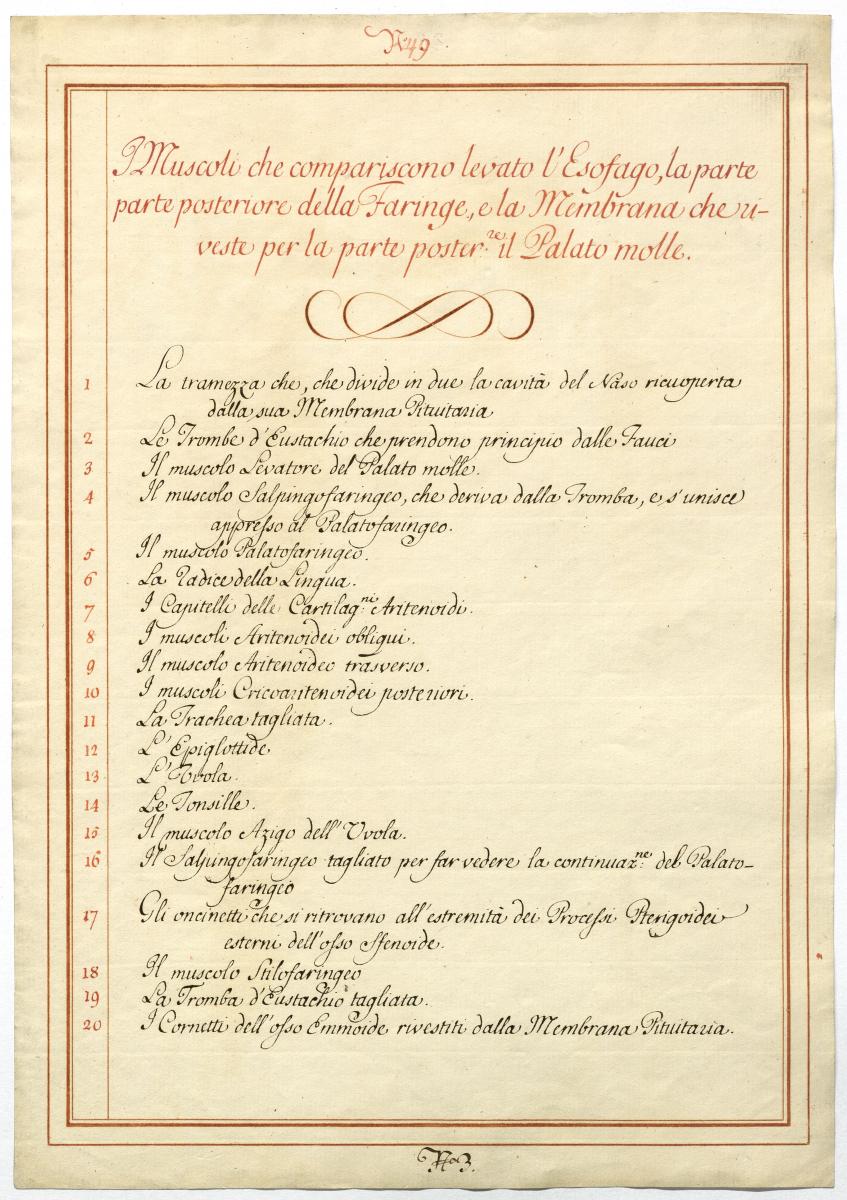 N.49
I Muscoli che compariscono levato l'Esofago, la parte
parte posteriore della Faringe, e la Membrana che ri-
veste per la parte poster.re il Palato molle.
1 La tramezza che, che divide in due la cavità del Naso ricuoperta
dalla sua Membrana Pituitaria
2 Le Trombe d'Eustachio che prendono principio dalle Fauci
3 Il muscolo Levatore del Palato molle.
4 Il muscolo Salpingofaringeo, che deriva dalla Tromba, e s'unisce
appresso al Palatofaringeo.
5 Il muscolo Palatofaringeo.
6 La Radice della Lingua.
7 I Capitelli delle Cartilag.ni Aritenoidi.
8 I muscoli Aritenoidei obliqui.
9 Il muscolo Aritenoideo trasverso.
10 I muscoli Cricoaritenoidei posteriori.
11 La Trachea tagliata.
12 L'Epiglottide
13 L'Uvola.
14 Le Tonsille.
15 Il muscolo Azigo dell'Uvola.
16 Il Salpingofaringeo tagliato per far vedere la continuaz.ne del Palato-
faringeo
17 Gli oncinetti che si ritrovano all'estremità dei Processi Pterigoidei
esterni dell'osso Sfenoide.
18 Il muscolo Stilofaringeo
19 La Tromba d'Eustachio tagliata.
20 I Cornetti dell'osso Emmoide rivestiti dalla Membrana Pituitaria.
N.o 3.